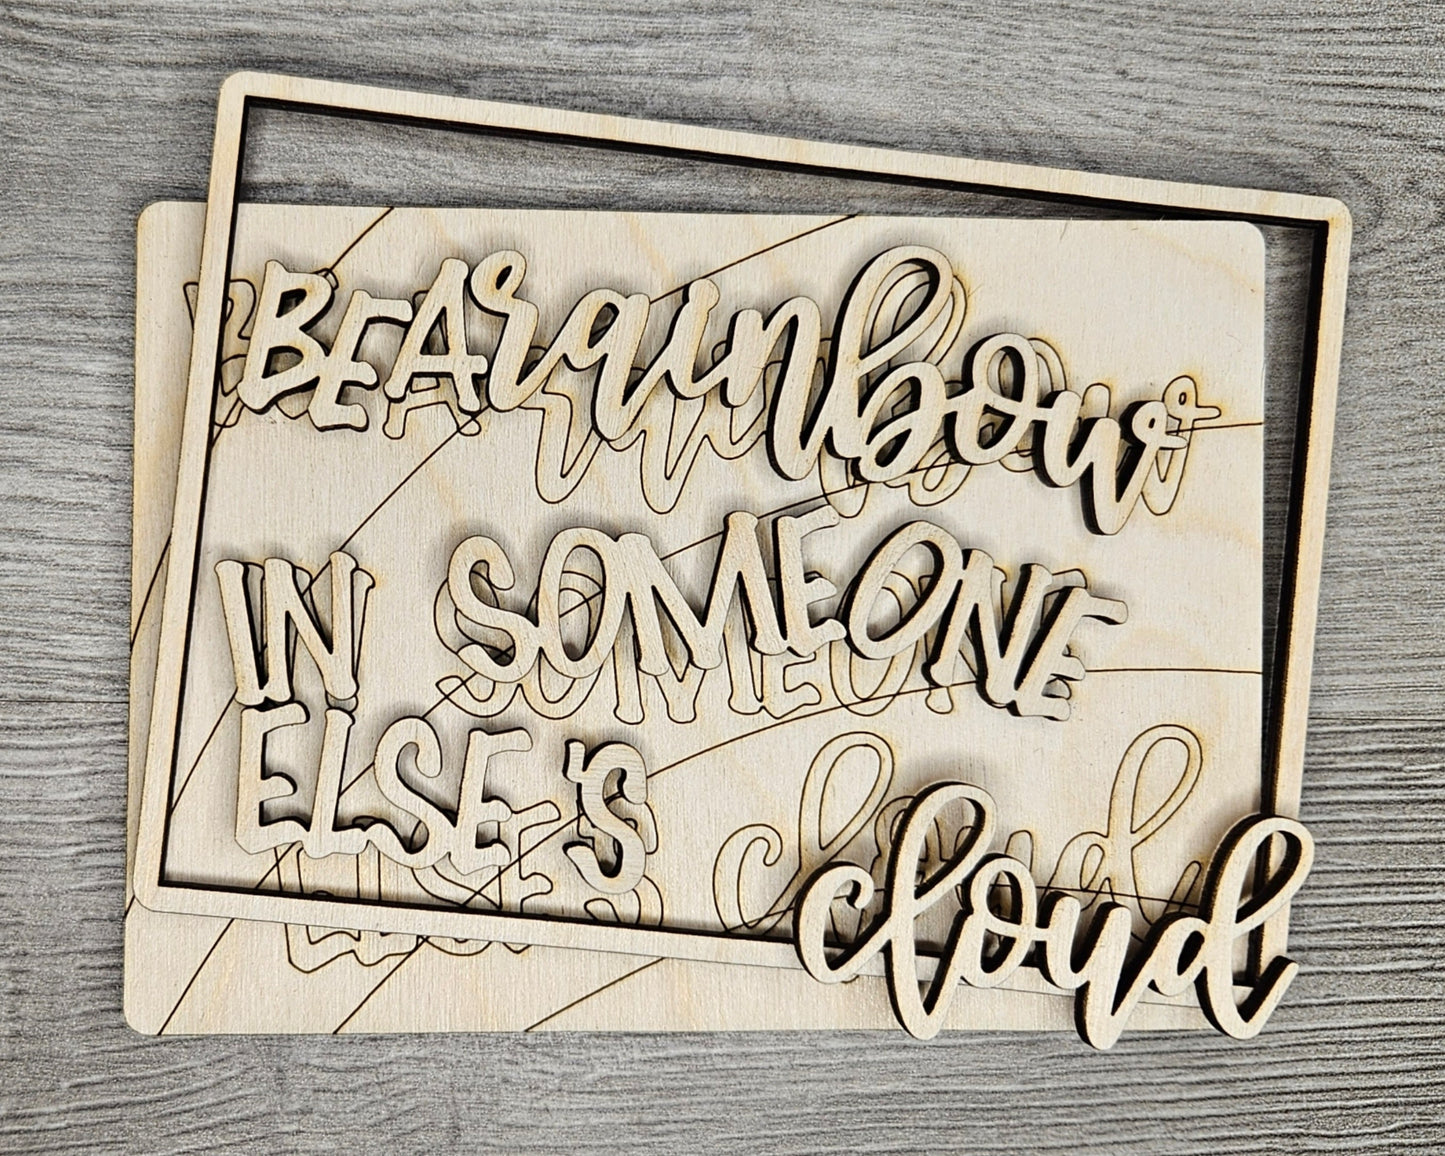 BE A rainbow
IN SOMEONE
ELSE'S cloud